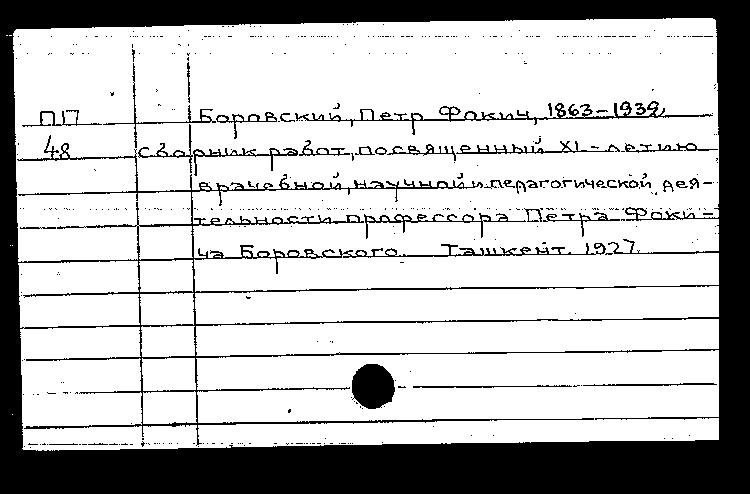 ПП Боровский, Петр Фокич, 1863-1932
48 Сборник работ, посвященный XL-летию
врачебной, научной и педагогической дея-
тельности профессора Петра Фоки-
ча Боровского. Ташкент. 1927.